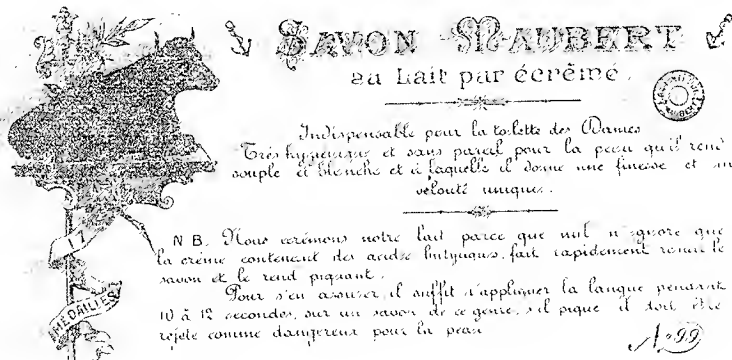 SAVON MAUBERT
au Lait pur écrêmé.
Indispensable pour la toilette des Dames
Très hygiénique et sans pareil pour la peau qu'il rend
souple et blanche et à laquelle il donne une finesse et un
velouté uniques.
N B. Nous écrémons notre lait parce que nul n'ignore que
la crème contenant des acides butyriques, fait rapidement rancir le
savon et le rend piquant.
Pour s'en assurer, il suffit d'appliquer la langue pendant
10 à 12 secondes, sur un savon de ce genre, s'il pique il doit être
rejeté comme dangereux pour la peau
MEDAILLES
N° 99